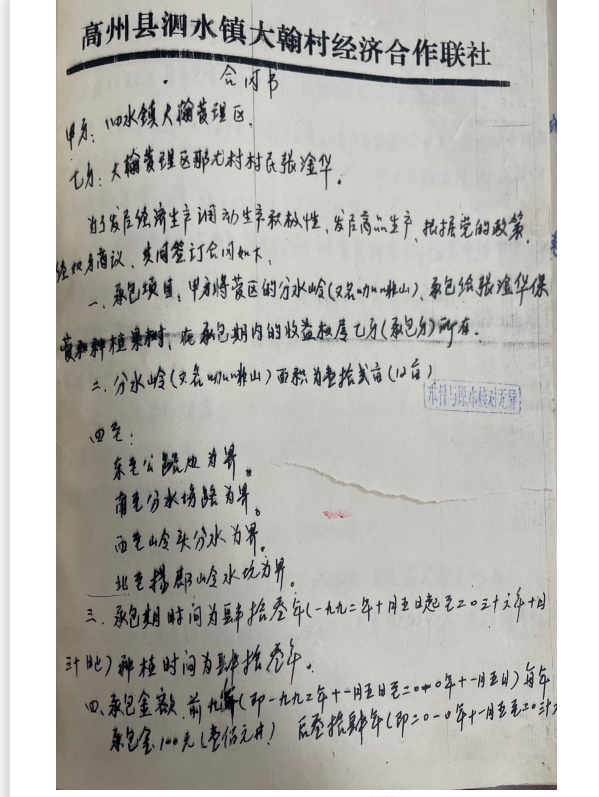 高州县泗水镇大翰村经济合作联社
合同书
甲方：泗水镇大翰管理区。
乙方：大翰管理区那尤村村民张淦华。
为了发展经济生产调动生产积极性，发展商品生产，根据党的政策，
经双方商议，共同签订合同如下。
一、承包项目，甲方将管区的分水岭(又名 山)、承包给张淦华保
管和种植果树，在承包期内的收益权属乙方(承包方)所有。
二、分水岭(又名 山)面积为壹拾贰亩(12亩)
本件与原本核对无异
四至：
东至公路边为界。
南至分水塘路为界。
西至岭头分水为界。
北至 岭水坑为界。
三、承包期时间为肆拾叁年(一九九二年十月五日起至二0三十六年十月
三十日止)种植时间为肆拾叁年。
四、承包金额，前 (即一九九二年十一月五日至二0一0年十一月五日)每年
承包金100元(壹佰元 ) 后叁拾肆年(即二0一0年十一月五至二0三十六